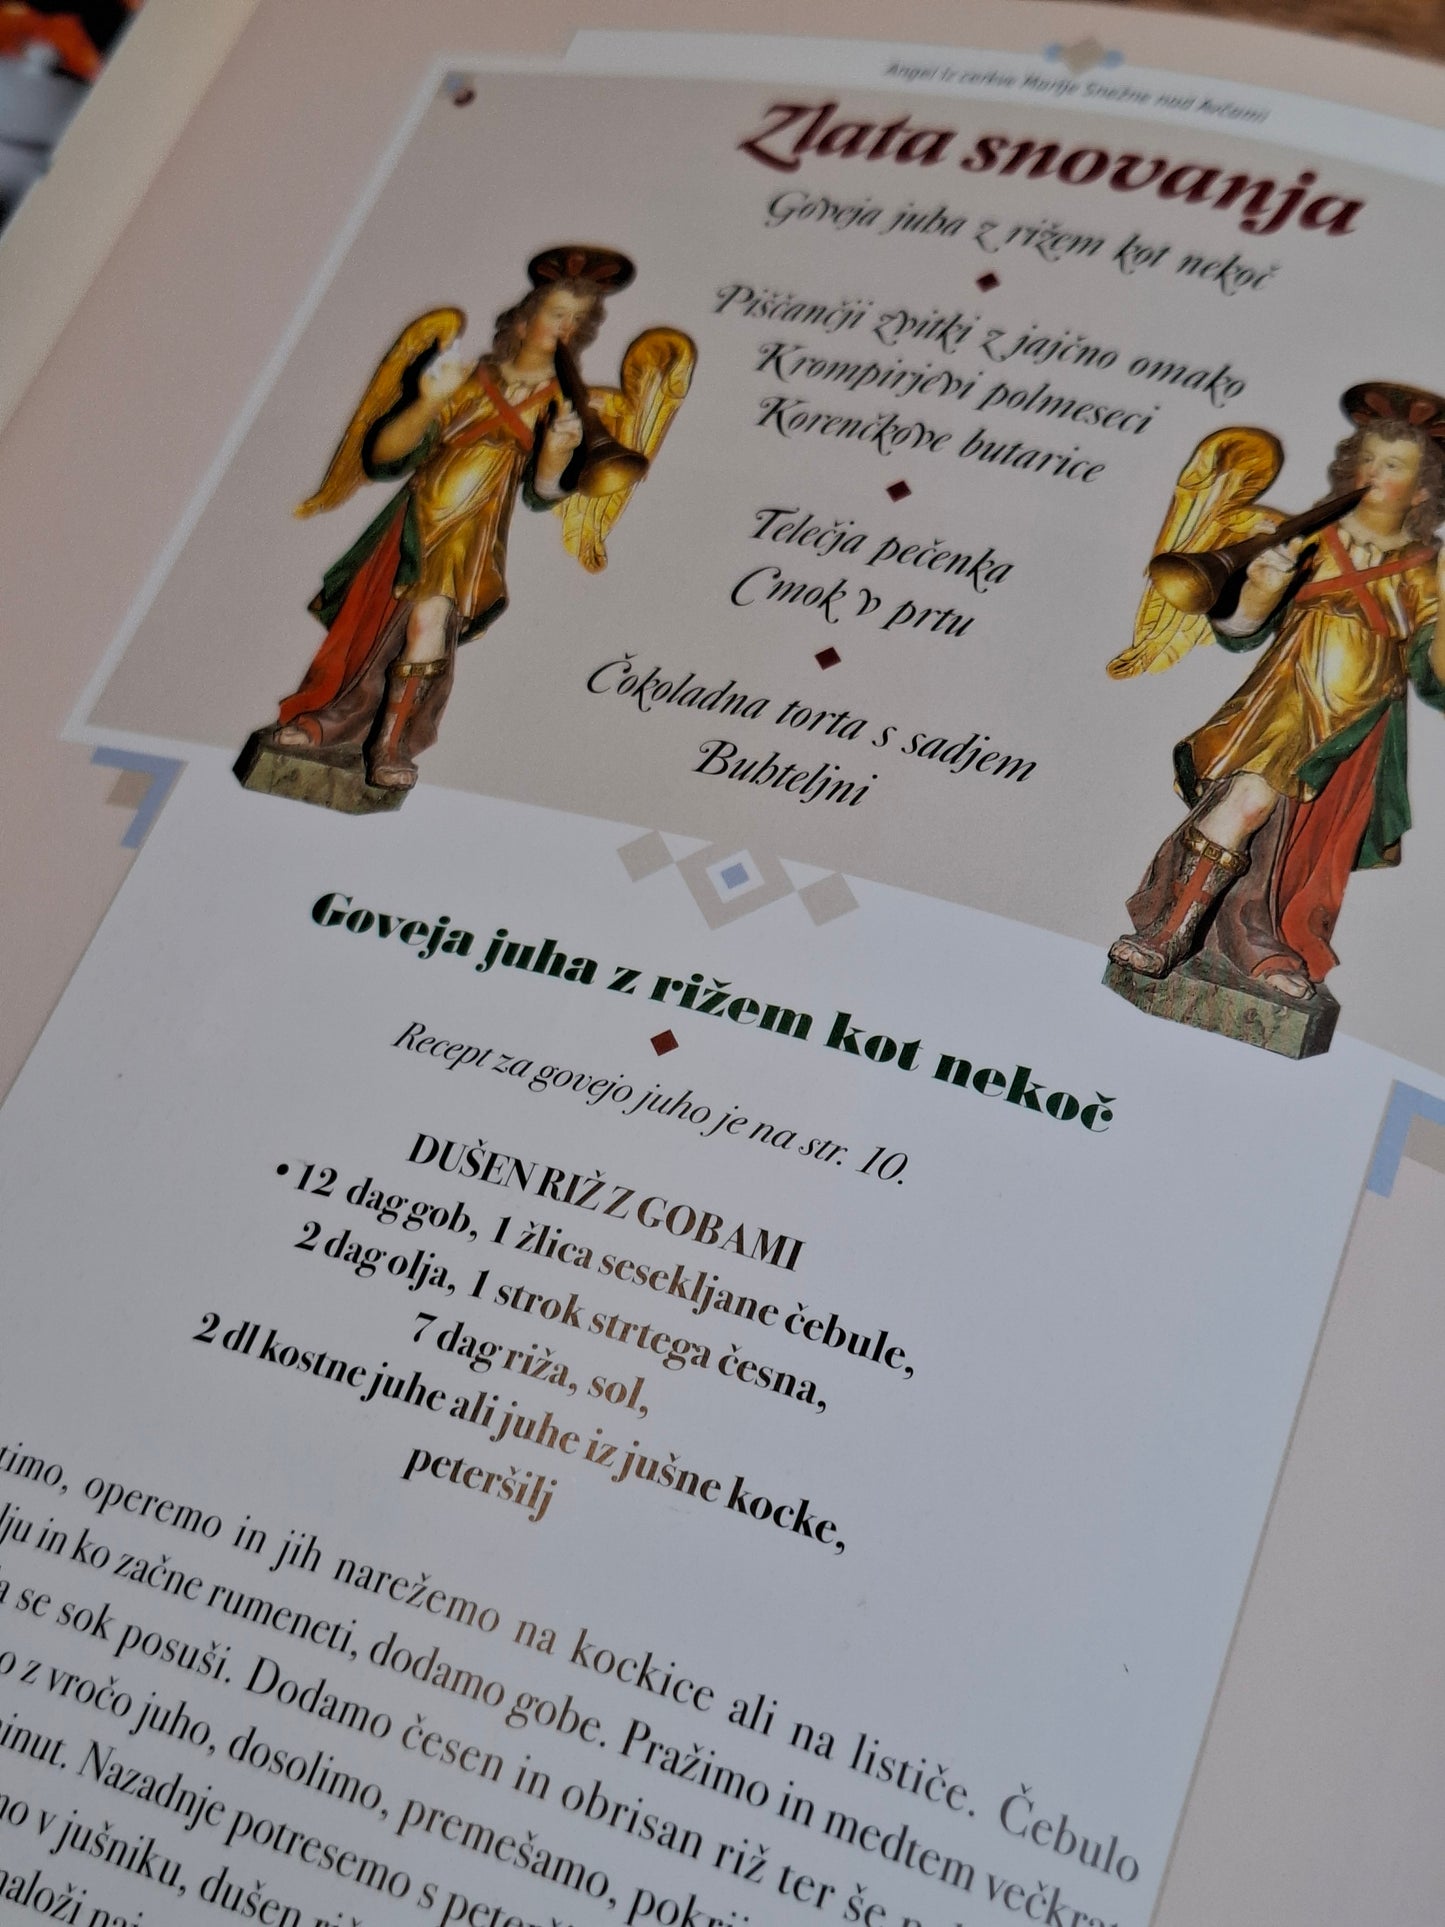 Angel iz cerkve Marije Snežne nad Avčami
Zlata snovanja
Goveja juha z rižem kot nekoč
Piščančji zvitki z jajčno omako
Krompirjevi polmeseci
Korenčkove butarice
Telečja pečenka
Cmok v prtu
Čokoladna torta s sadjem
Buhteljni
Goveja juha z rižem kot nekoč
Recept za govejo juho je na str. 10.
DUŠEN RIŽ Z GOBAMI
• 12 dag gob, 1 žlica sesekljane čebule,
2 dag olja, 1 strok strtega česna,
7 dag riža, sol,
2 dl kostne juhe ali juhe iz jušne kocke,
peteršilj
operemo in jih narežemo na kockice ali na lističe. Čebulo
in ko začne rumeneti, dodamo gobe. Pražimo in medtem
se sok posuši. Dodamo česen in obrisan riž ter še
z vročo juho, dosolimo, premešamo,
Nazadnje potresemo s
v jušniku, dušen